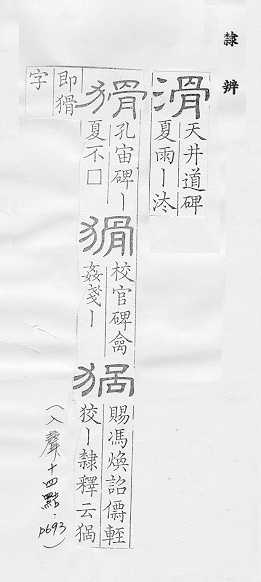 隸辨
滑
天井道碑
夏雨ー
猾
孔宙碑ー
夏不□
猾
校官碑禽
姦戔ー
猧
賜馮煥詔儔輕
狡ー隸釋云猧
即猾
字
(入聲十四黠.p693)